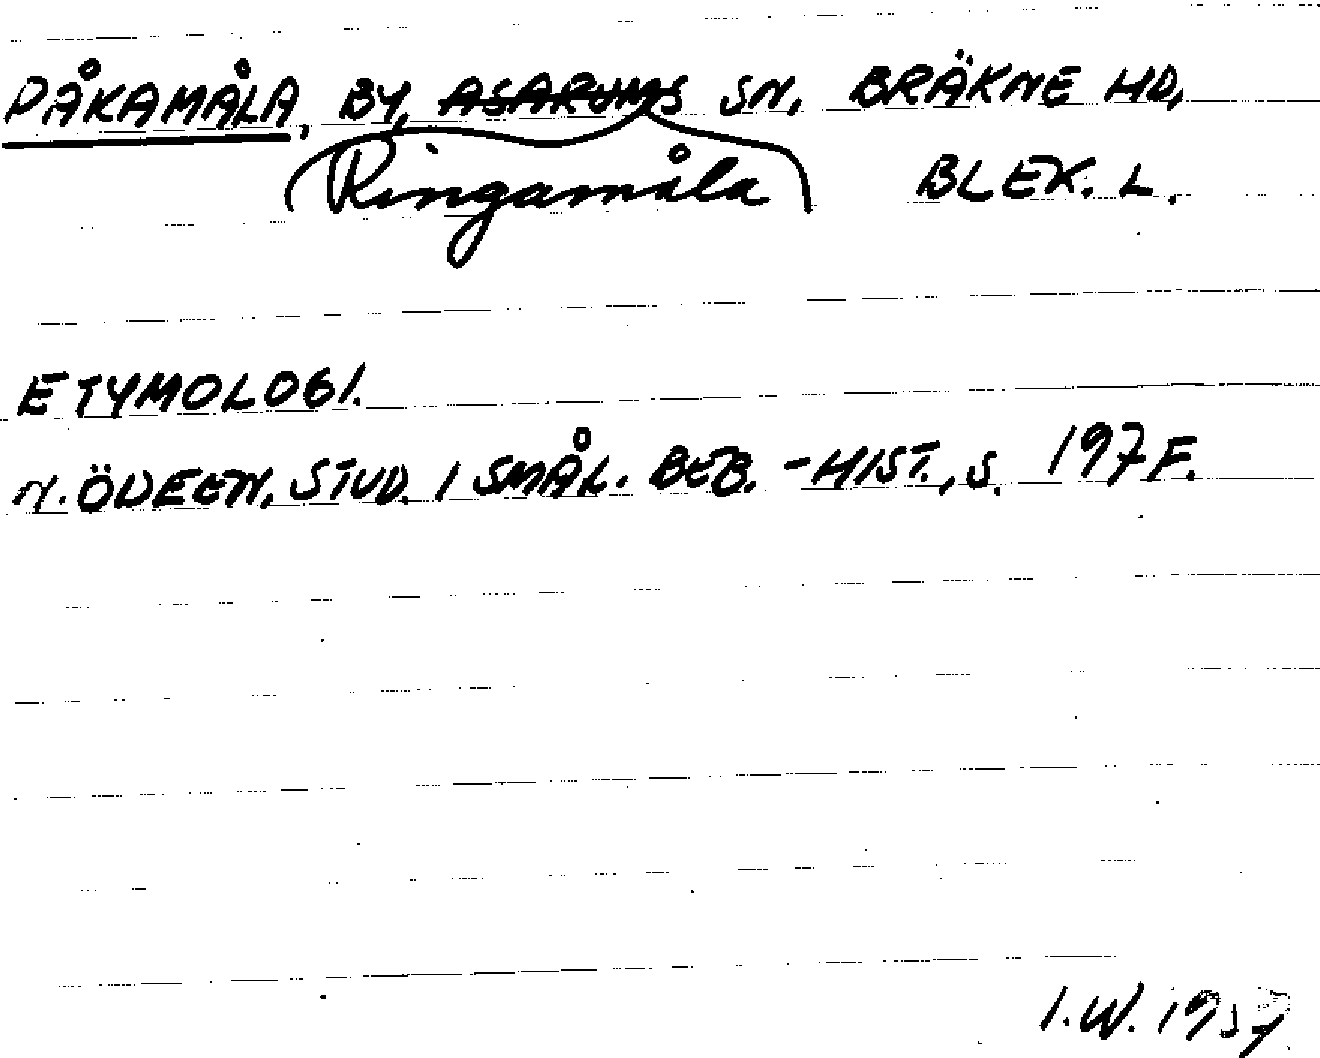 PÅKAMÅLA, BY, ASARUMS SN, BRÄKNE HD,
Ringamåla BLEK. L.
ETYMOLOGI.
N. ÖDEEN, STUD. I SMÅL. BEB.-HIST., S. 197 F.
I.W. 1937